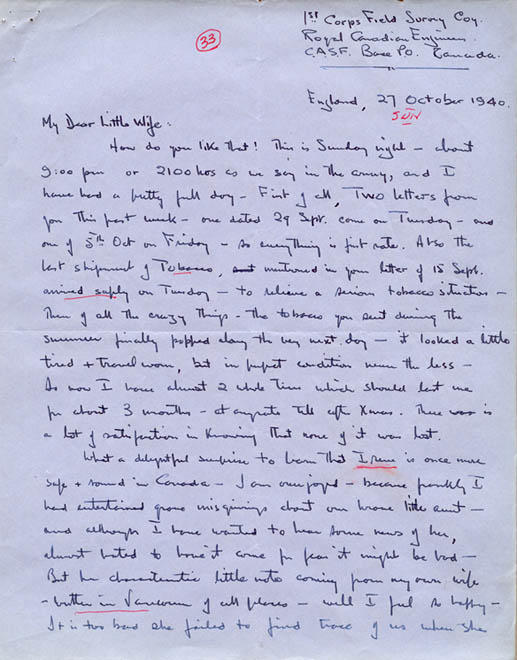 33
1st Corps Field Survey Coy.
Royal Canadian Engineers
C.A.S.F. Base P.O. Canada.
England, 27 October 1940.
SUN
My Dear Little Wife:
How do you like that! This is Sunday night - about
9:00 pm or 2100 hrs as we say in the army, and I
have had a pretty full day - First of all, Two letters from
you this past week - one dated 29 Sept. come on Tuesday - and
one of 5th Oct on Friday - so everything is first rate. Also the
last shipment of Tobacco, mentioned in your letter of 18 Sept.
arrived safely on Tuesday - to relieve a serious tobacco situation -
Then of all the crazy things - the tobacco you sent during the
summer finally popped along the very next day - it looked a little
tired + travel worn, but in perfect condition never the less -
So now I have almost 2 whole Tins which should last me
for about 3 months - at any rate till after Xmas. There is
a lot of satisfaction in knowing that none of it was lost.
What a delightful surprise to learn that Irene is once more
safe + sound in Canada - I am overjoyed - because frankly I
had entertained grave misgivings about our brave little aunt -
and although I have wanted to hear some news of her,
almost hated to have it come for fear it might be bad -
But her characteristic little note coming from my own wife
- written in Vancouver of all places - well I feel so happy -
It is too bad she failed to find trace of us when she